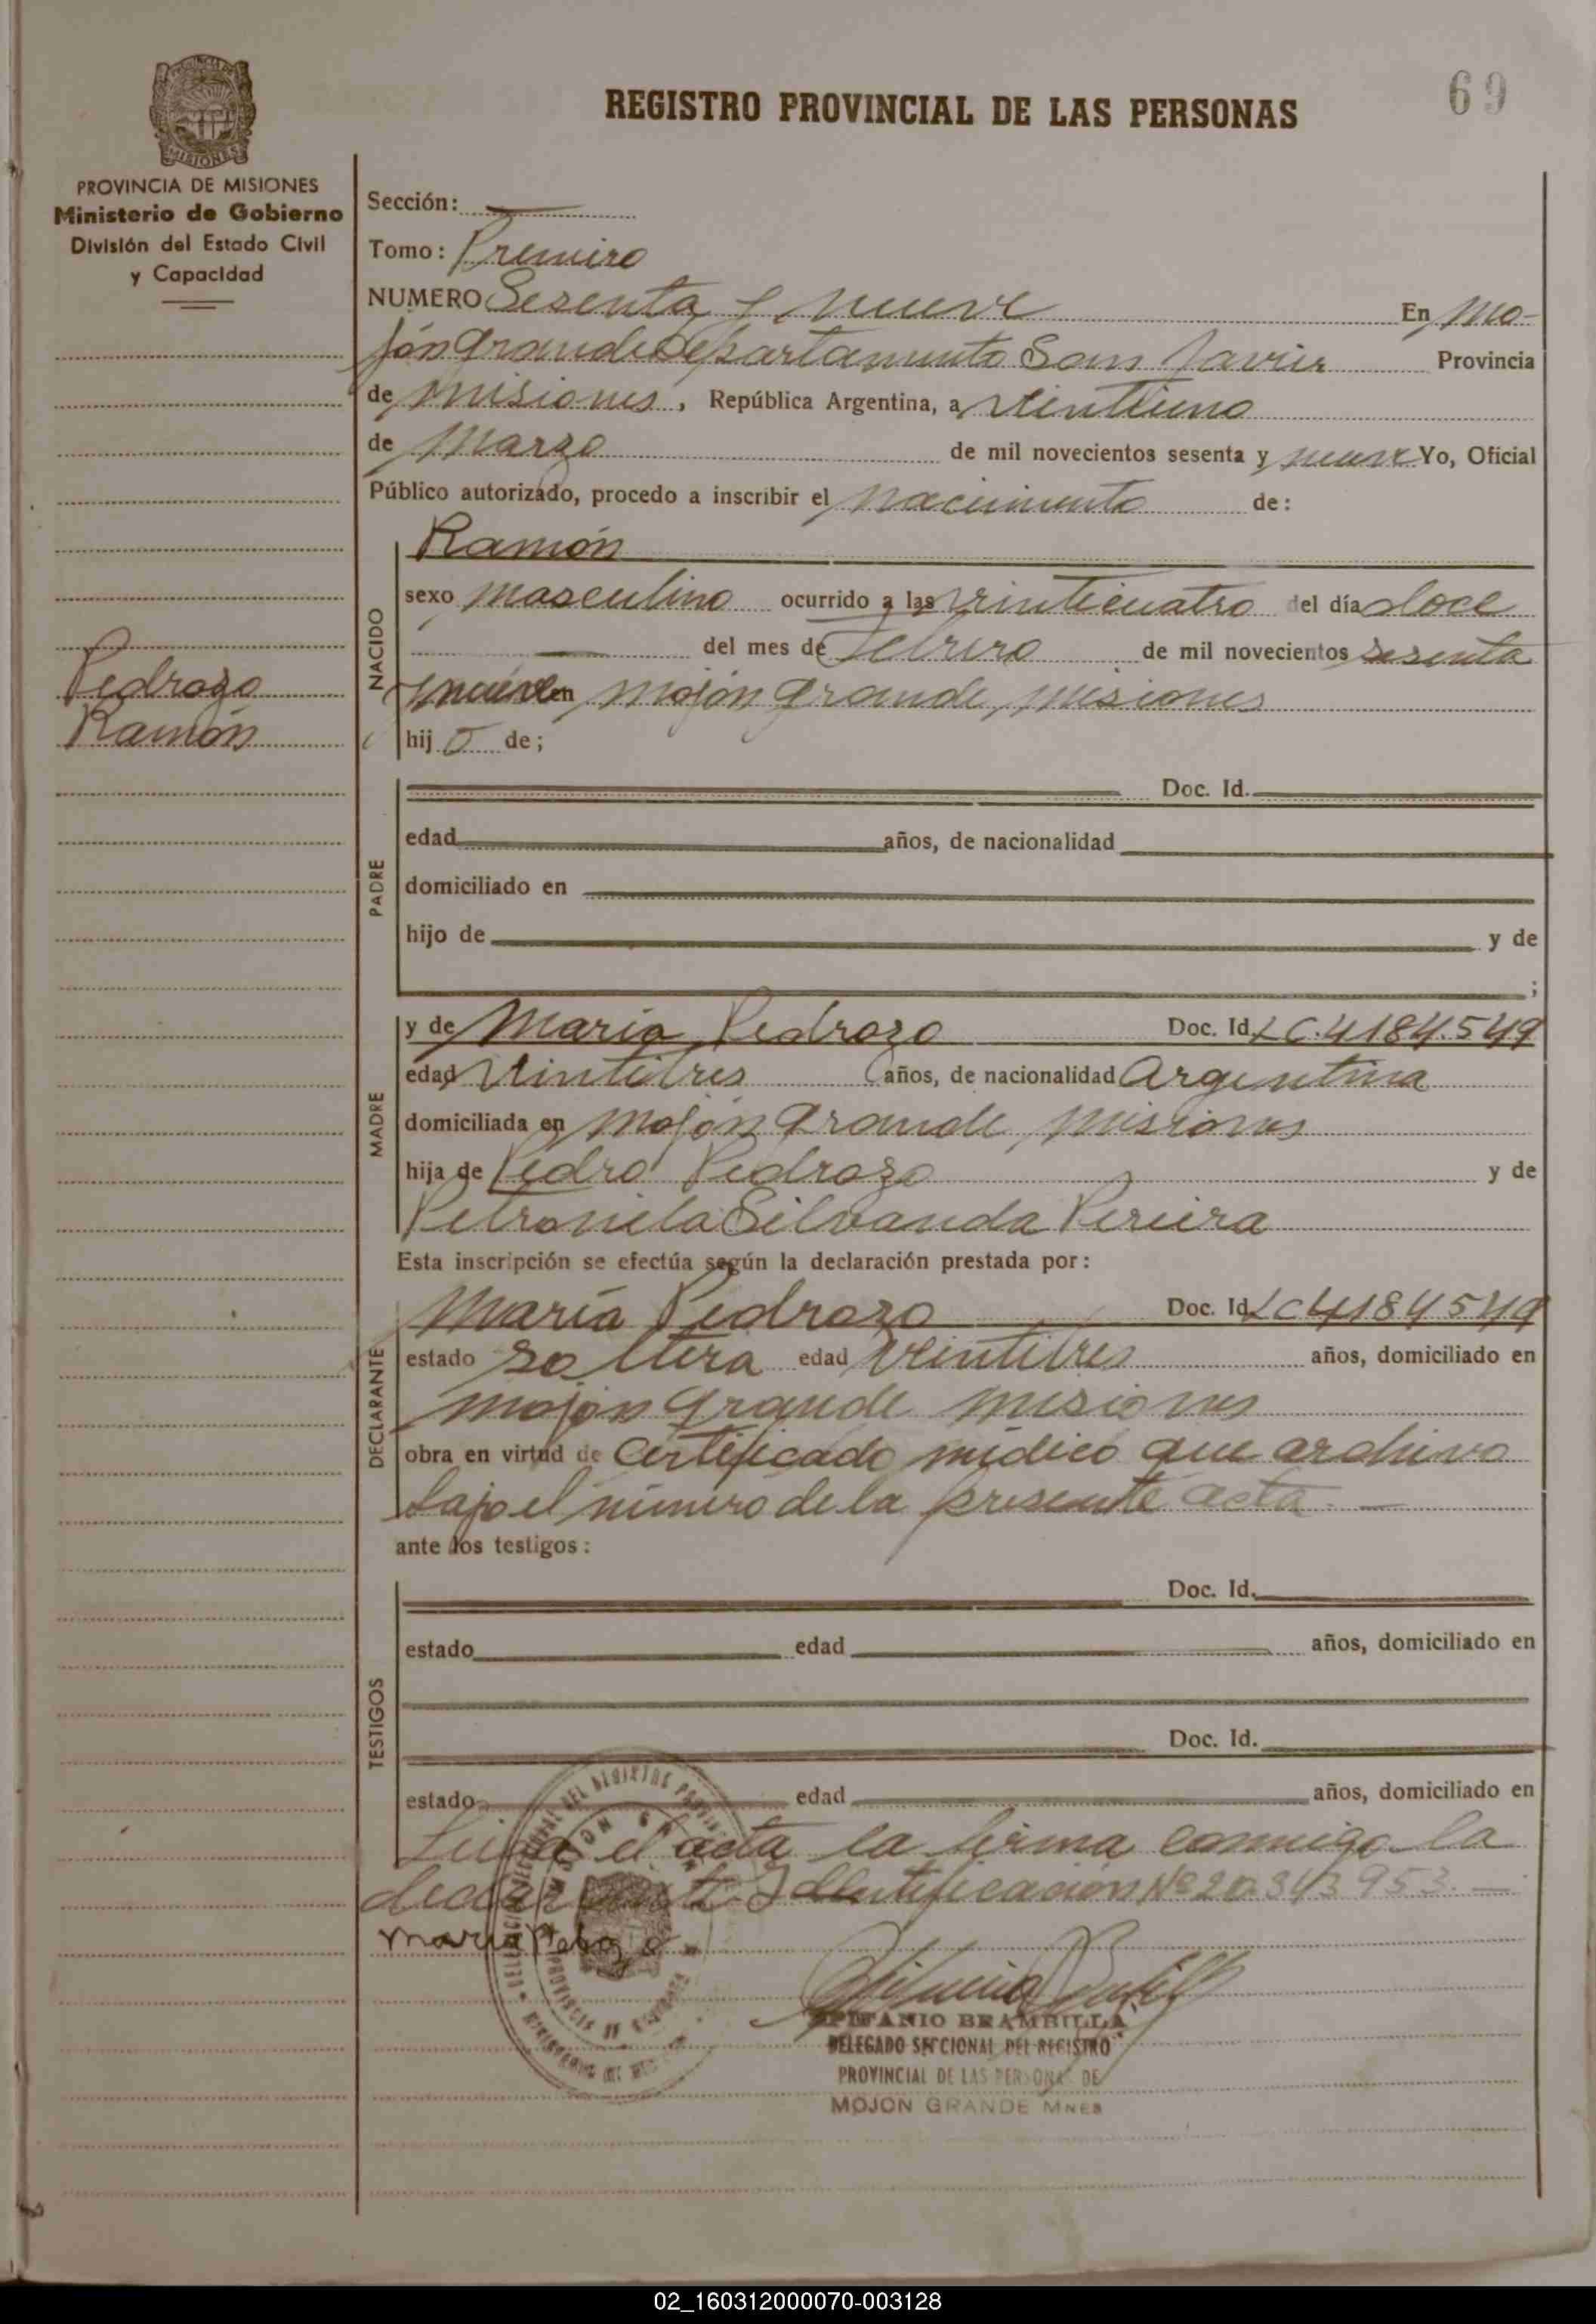 REGISTRO PROVINCIAL DE LAS PERSONAS
69
MISIONES
PROVINCIA DE MISIONES
Ministerio de Gobierno
División del Estado Civil
y Capacidad
Pedrozo
Ramón
Sección:
Tomo: Premiro
NUMERO Sesenta y nueve En Mo-
jón Grande Departamento San Javier Provincia
de Misiones, República Argentina, a veintiuno
de Marzo de mil novecientos sesenta y nueve Yo, Oficial
Público autorizado, procedo a inscribir el nacimiento de:
NACIDO
Ramón
sexo masculino ocurrido a las veinticuatro del día doce
del mes de Febrero de mil novecientos sesenta
y nueve en Mojón Grande, Misiones
hijo de;
PADRE
Doc. Id.
edad años, de nacionalidad
domiciliado en
hijo de y de
;
MADRE
y de María Pedrozo Doc. Id. LC. 4184.549
edad Veintitres años, de nacionalidad Argentina
domiciliada en Mojón Grande Misiones
hija de Pedro Pedrozo y de
Petronila Silvanda Pereira
Esta inscripción se efectúa según la declaración prestada por:
DECLARANTE
María Pedrozo Doc. Id. LC 4184549
estado soltera edad Veintitres años, domiciliado en
Mojón Grande Misiones
obra en virtud de Certificado médico que archivo
bajo el número de la presente acta. —
ante los testigos:
TESTIGOS
Doc. Id.
estado edad años, domiciliado en
Doc. Id.
estado edad años, domiciliado en
Leída el acta la firma conmigo la
declarante Identificación Nº 20.343953. —
Maria
EPIFANIO BRAMBILLA
DELEGADO SECCIONAL DEL REGISTRO
PROVINCIAL DE LAS PERSONAS DE
MOJON GRANDE MNES
02_160312000070-003128